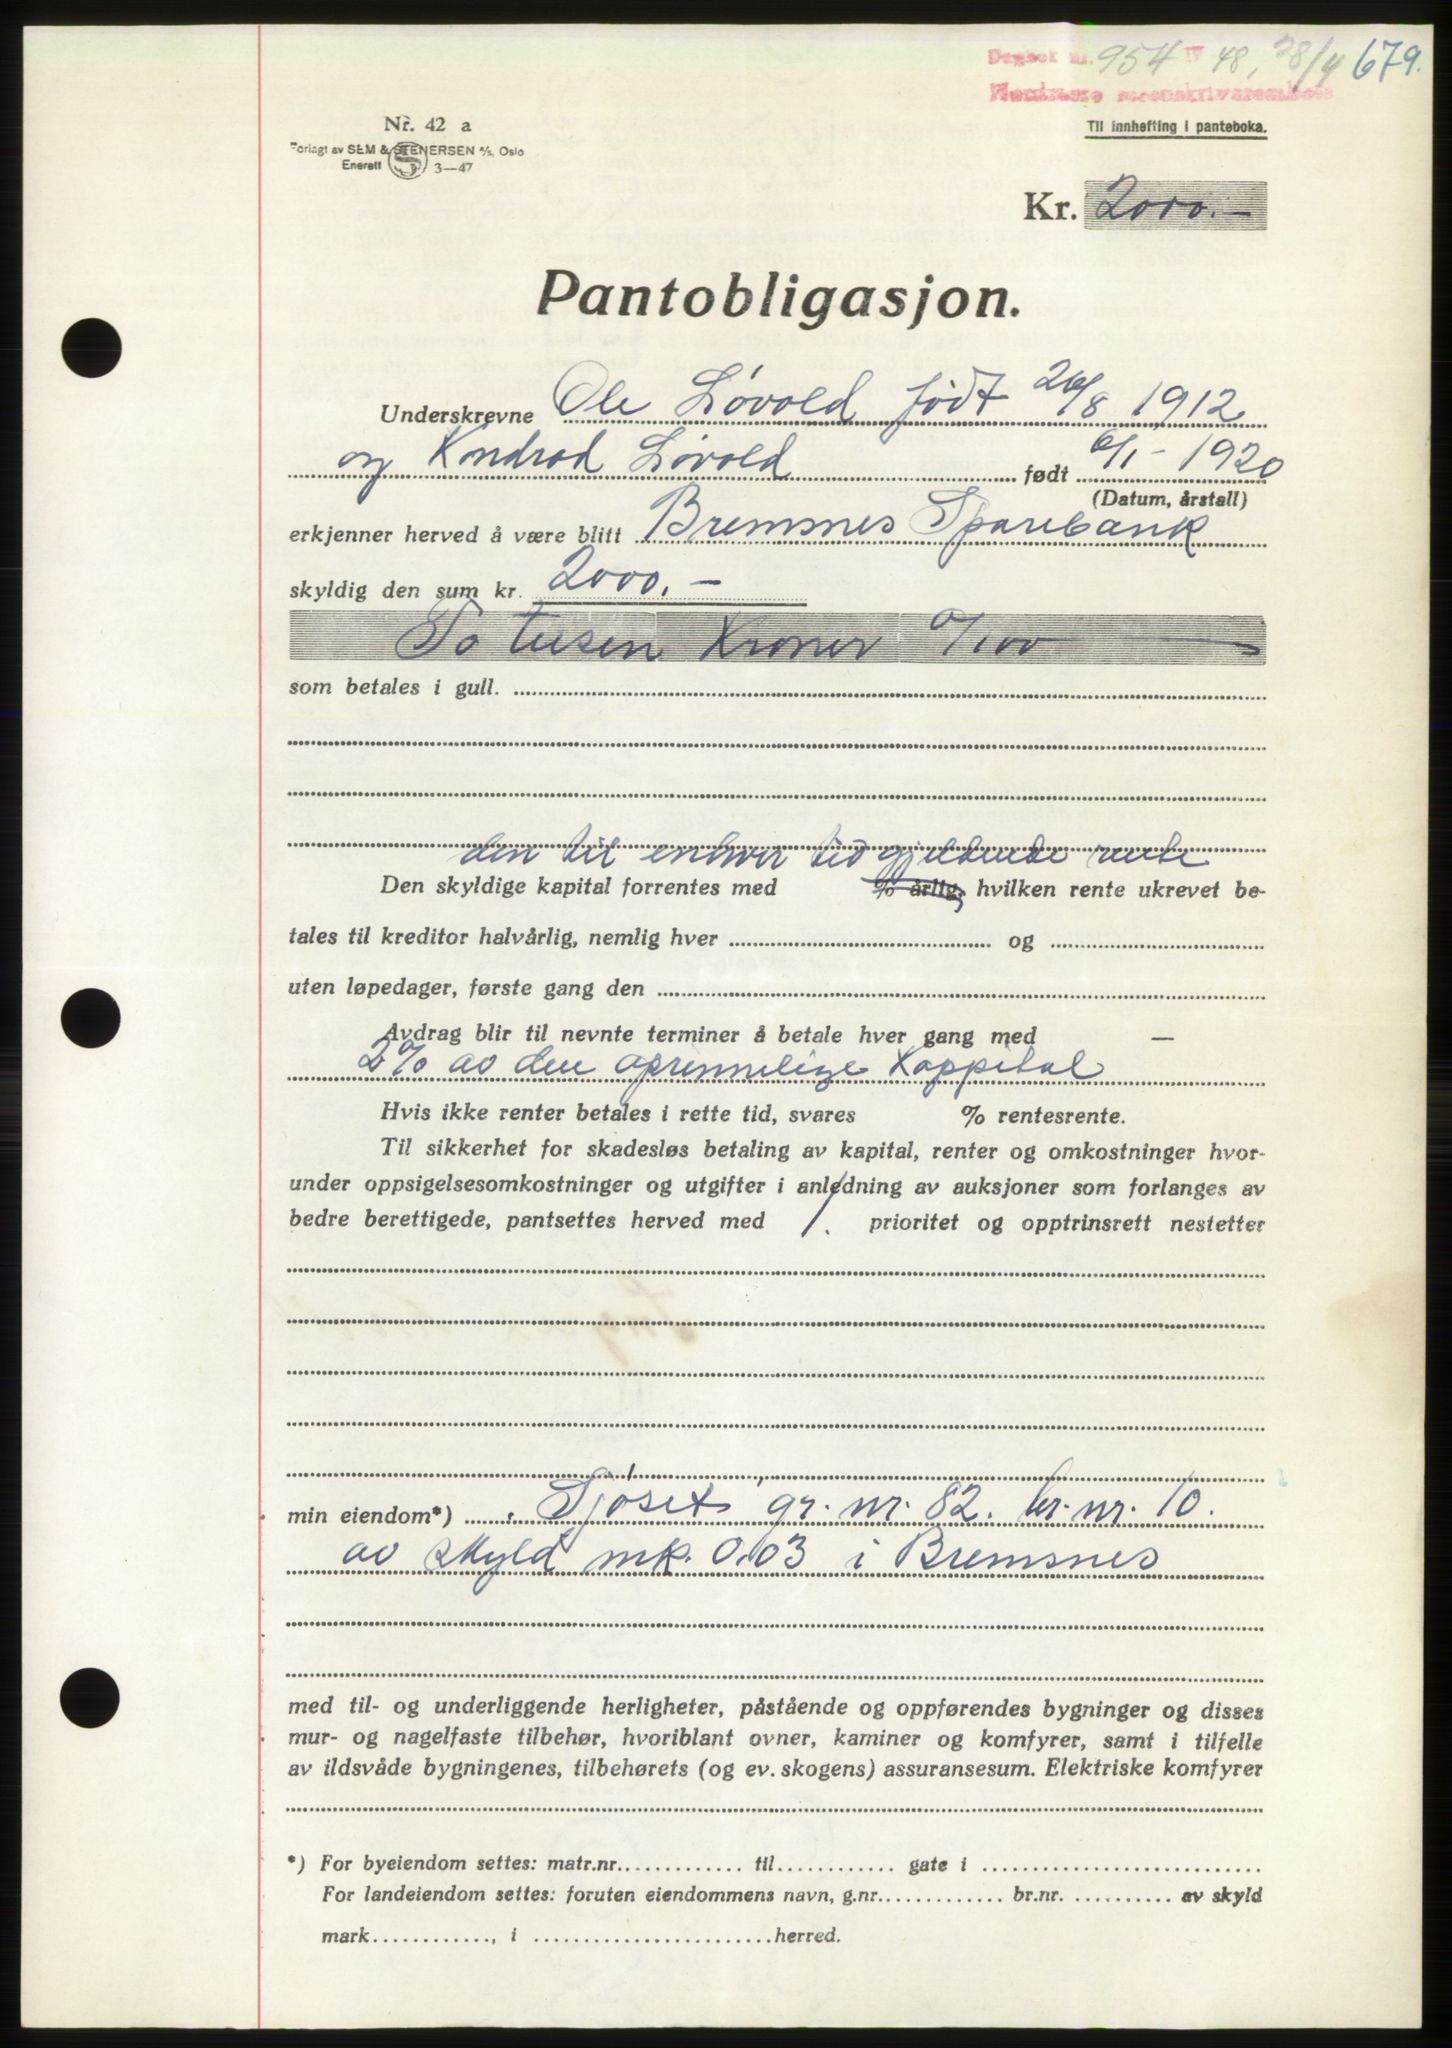 Dagbok nr. 954 19 48, 28/4 679.
Nordmøre sorenskriverembete
Til innhefting i panteboka.
Nr. 42 a
Forlagt av SEM & STENERSEN A/S, Oslo
Enerett 3—47
Kr. 2000.-
Pantobligasjon.
Underskrevne Ole Løvold født 26/8 1912
og Kondrad Løvold født 6/1 - 1920
(Datum, årstall)
erkjenner herved å være blitt Bremsnes Sparebank
skyldig den sum kr. 2000.-
To tusen Kroner 0/100
som betales i gull.
den til enhver tid gjeldende rente
Den skyldige kapital forrentes med % årlig, hvilken rente ukrevet be-
tales til kreditor halvårlig, nemlig hver og
uten løpedager, første gang den
Avdrag blir til nevnte terminer å betale hver gang med —
2% av den oprinnelige Kappital
Hvis ikke renter betales i rette tid, svares % rentesrente.
Til sikkerhet for skadesløs betaling av kapital, renter og omkostninger hvor-
under oppsigelsesomkostninger og utgifter i anledning av auksjoner som forlanges av
bedre berettigede, pantsettes herved med 1. prioritet og opptrinsrett nestetter
min eiendom*) "Sjøset" gr. nr. 82. br. nr. 10.
av skyld mk. 0.03 i Bremsnes
med til- og underliggende herligheter, påstående og oppførendes bygninger og disses
mur- og nagelfaste tilbehør, hvoriblant ovner, kaminer og komfyrer, samt i tilfelle
av ildsvåde bygningenes, tilbehørets (og ev. skogens) assuransesum. Elektriske komfyrer
*) For byeiendom settes: matr.nr. til gate i
For landeiendom settes: foruten eiendommens navn, g.nr. br.nr. av skyld
mark , i herred.